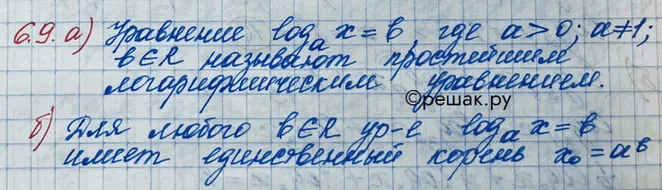 6.9. а) Уравнение logₐ x = в, где а > 0; а ≠ 1;
в ∈ R называют простейшим
логарифмическим уравнением.
©решак.ру
б) Для любого в ∈ R ур-е logₐ x = в
имеет единственный корень x₀ = aᵇ